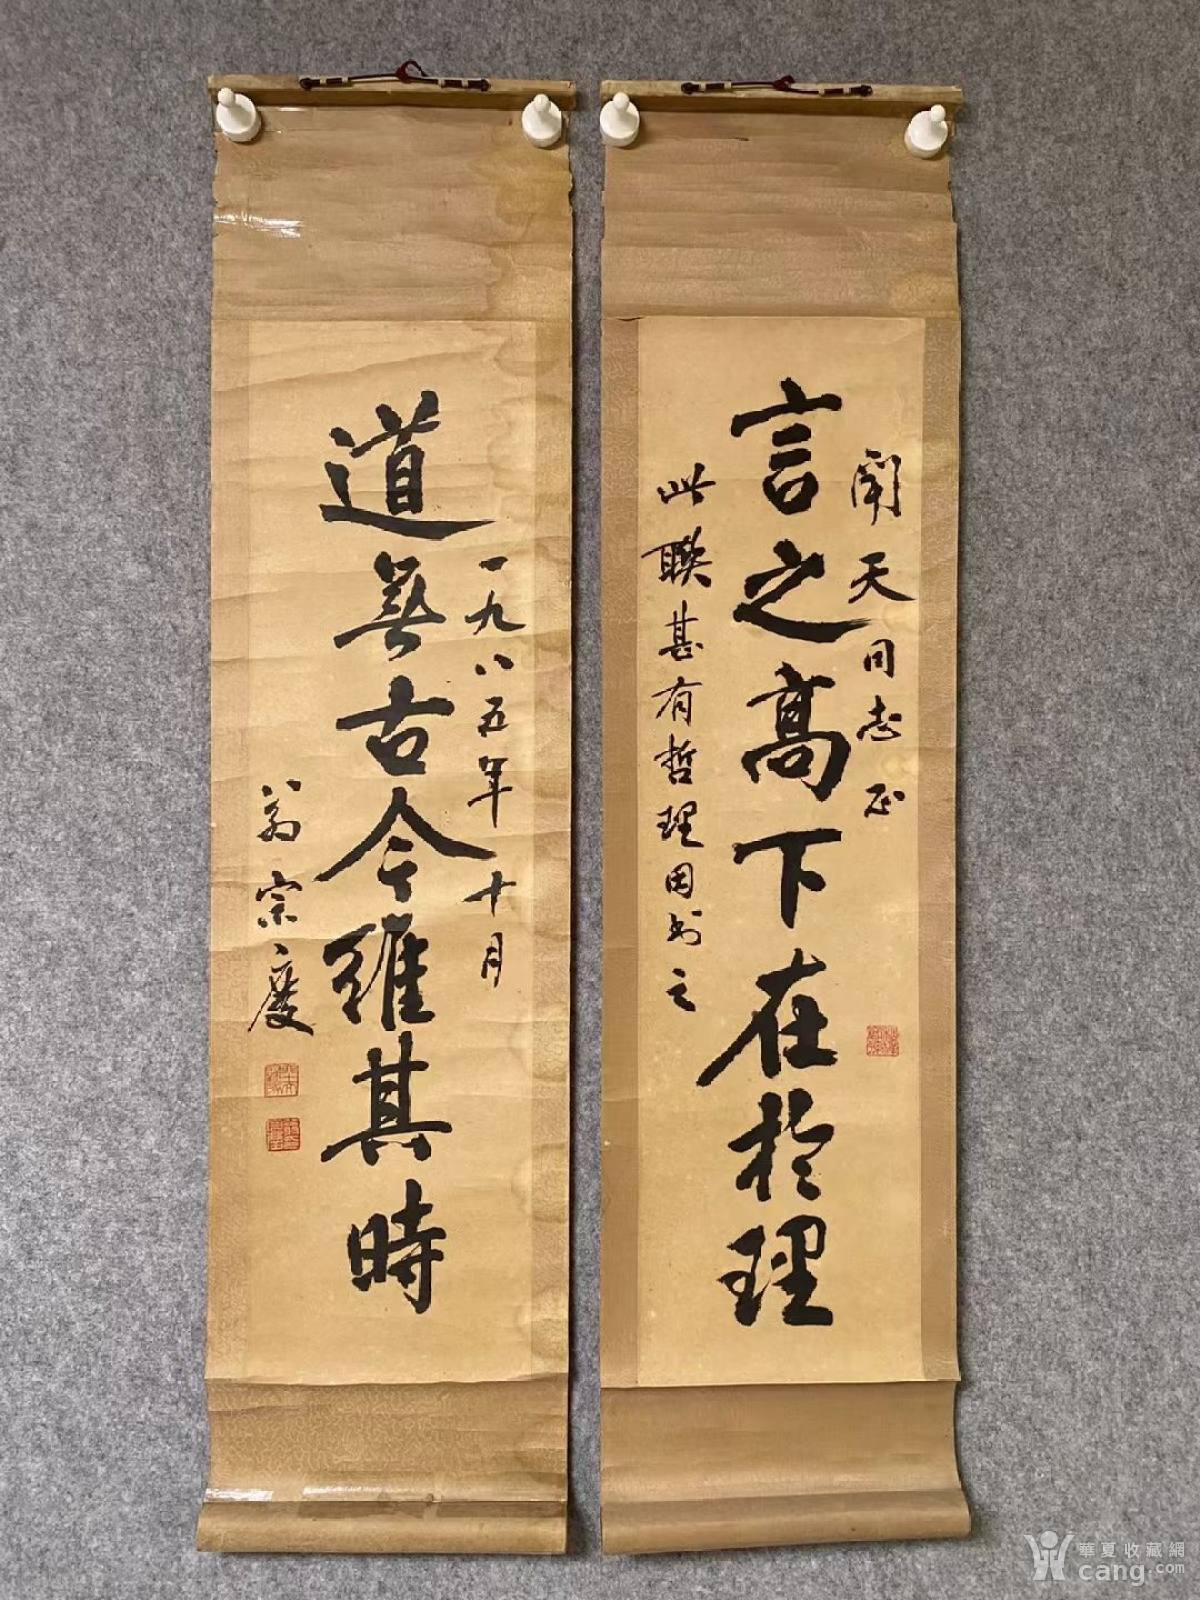 言之高下在於理
闻天同志正
此联甚有哲理因书之
道無古今維其時
一九八五年十月
翁宗慶
華夏收藏網
cang.com